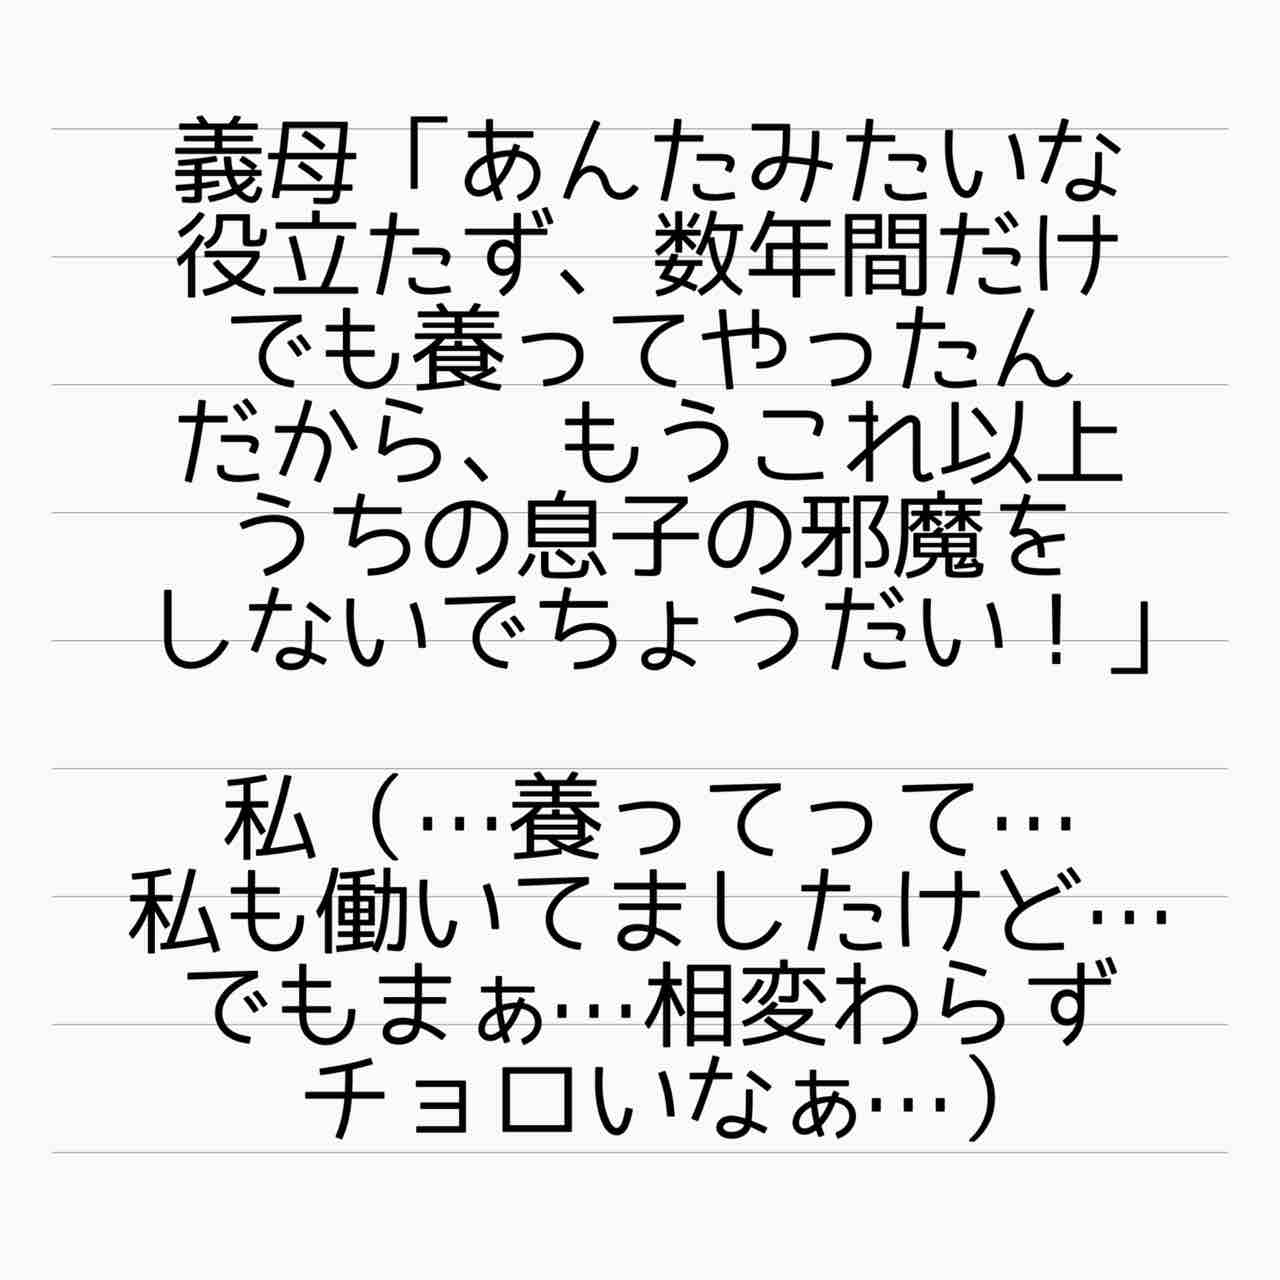 義母「あんたみたいな
役立たず、数年間だけ
でも養ってやったん
だから、もうこれ以上
うちの息子の邪魔を
しないでちょうだい！」
私（…養ってって…
私も働いてましたけど…
でもまぁ…相変わらず
チョロいなぁ…）